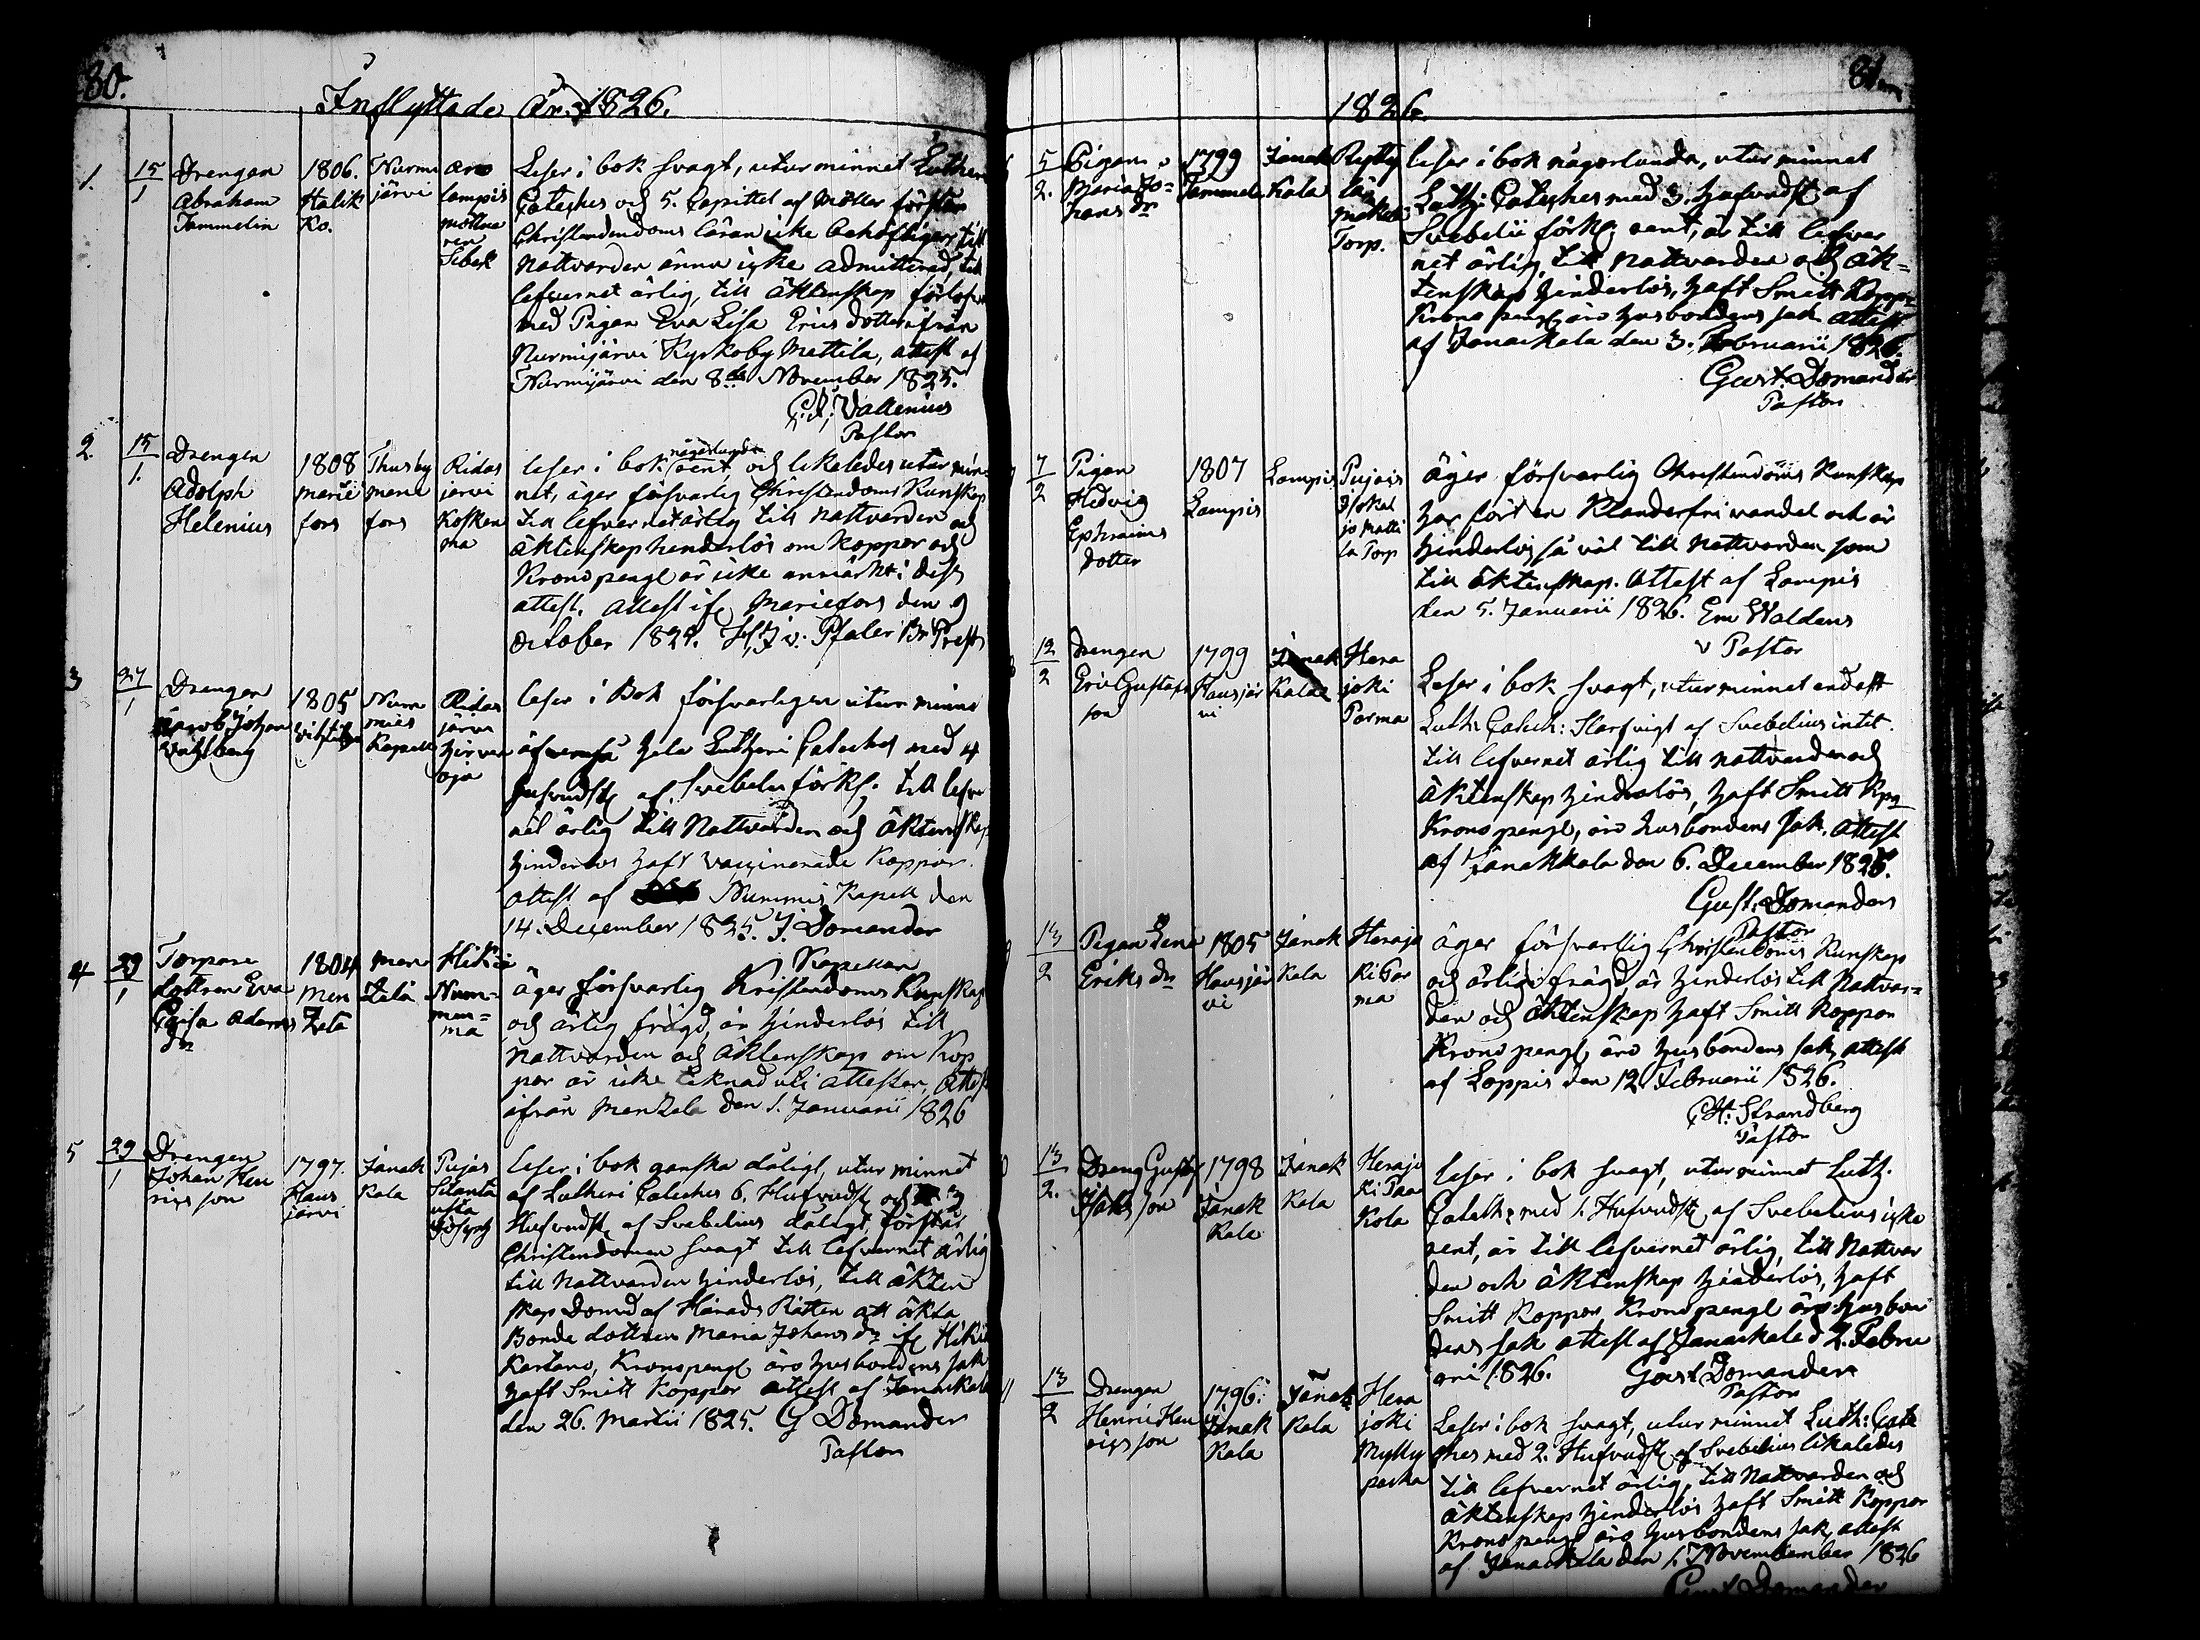 80.
Inflyttade År 1826.
1.
15/1
Drengen
Abraham
Tammelin
1806.
Halik
Ko.
Nurmi
järvi
Aro
lampis
möllna
ren
Sebek
Leser i bok svagt, utur minnet Lutheri
Cateches och 5. Capittel af Möller förstår
Christendoms läran icke behöfligen till
Nattvarden ännu icke admitterad, till
lefvernet ärlig, till äktenskap förlofvad
med Pigan Eva Lisa Ericsdotter ifrån
Nurmijärvi Kyrkoby Mattila, attest af
Nurmijärvi den 8de November 1825.
Vallenius
Pastor
2.
15/1.
Drengen
Adolph
Helenius
1808
marie
fors
Thusby
marie
fors
Ridas
jervi
Kosken
ma
leser i bok någorlunda rent, och likaledes utur min-
net, äger försvarlig Christendoms Kunskap
till lefvernet ärlig till nattvarden och
äktenskap henderlös om koppor och
Kronopengl är icke anmärkt i dess
attest. Attest ifr Mariefors den 9
October 1824. H J v. Pfaler Br Prest
3
27/1
Drengen
Jacob Johan
Vahlberg
1805
Vihtis
Num
mis
Kapell
Ridas
järvi
Hirven
oja
leser i Bok försvarligen utur minne
äfvenså hela Lutheri Cateches med 4
Hufvudst af Svebelii förkl. till lefver
net ärlig till Nattvarden och äktenskap
hinderlös haft vaccinerade koppor.
attest af Nummis Kapell den
14. December 1825. J. Domander
Kapellan
4
29/1
Torpare
dottren Eva
Caisa Adams
dr
1804
Men
tzälä
Men
tzälä
Hikiä
Num-
men-
ma
äger försvarlig Kristendoms Kunskap
och ärlig frägd, är hinderlös till
nattvarden och äktenskap om Kop
por är icke teknad uti attesten, Attest
ifrån Mentzala den 1. Januarii 1826
5
29/1
Drengen
Johan Hen
rics son
1797.
Haus
järvi
Janak
kala
Pujas
Silanta
usta
Joseph
leser i bok ganska dåligt, utur minnet
af Lutheri Cateches 6. Hufvudst och 3
Hufvudst af Svebelius dåligt förstår
Christendomen svagt till lefvernet ärlig
till Nattvarden hinderlös, till äkten
skap Dömd af Härads Rätten att äkta
Bonde dottren Maria Johans dr ifr Hikiä
Kartano, Kronopengl äro husbondens sak
haft Smitt Koppor attest af Janakkala
den 26. Martii 1825. G Domander
Pastor
1826.
81.
5/2.
Pigan
Maria Jo-
hans dr
1799
Tammela
Janak
kala
Rytty
lä
Torp.
leser i bok någorlunda, utur minnet
Luth: Cateches med 3. Hafvudst af
Svebelii förkl rent, är till lefver
net ärlig till Nattvarden och äk-
tenskap hinderlös, haft Smitt Koppor
Krono pengl äro husbondens sak attest
af Janakkala den 3. Februarii 1826.
Gust. Domander
Pastor
7/2
Pigan
Hedvig
Ephraims
dotter
1807
Lampis
Lampis
Pujois
Iso kal
jo Matti
la Torp
äger försvarlig Christendoms Kunskap
har fört en Klanderfri vandel och är
hinderlös så väl till Nattvarden som
till äktenskap. Attest af Lampis
den 5. Januarii 1826. Em Waldens
v Pastor
12/2
Drengen
Eric Gustafs
son
1799
Hausjär
vi
Janak
Kala
Hera
joki
Parma
Leser i bok svagt, utur minnet endast
Luth: Catech: Slarfvigt af Svebelius intet.
till lefvernet ärlig till nattvarden och
äktenskap hinderlös, haft Smitt Kpr
Krono pengl, äro husbondens sak. Attest
af Janakkala den 6. December 1825.
Gust: Domander
Pastor
13/2
Pigan Lena
Eriks dr
1805
Hausjär
vi
Janak
kala
Herajo
ki Par
ma
äger försvarlig Christendoms Kunskap
och ärlig frägd, är hinderlös till Nattvar-
den och äktenskap haft Smitt Koppor
Krono pengl, äro husbondens sak, attest
af Loppis den 12 Februarii 1826.
H: Strandberg
Pastor
13/2.
Dreng Gustaf
Isaks son
1798
Janak
kala
Janak
kala
Herajo
ki Paa
kola
leser i bok svagt, utur minnet Luth.
Catech: med 1. Hufvudst af Svebelius icke
rent, är till lefvernet ärlig, till Nattvar
den och äktenskap hinderlös, haft
Smitt Koppor Kronopengl äro husbon
dens sak attest af Janakkala d 2. Febru
arii 1826. Gust Domander
Pastor
13/2
Drengen
Henric Hen
rics son
1796.
Janak
kala
Janak
kala
Hera
joki
Mylly
parka
Leser i bok svagt, utur minnet Luth: Cate
ches med 2. Hufvudst af Svebelius likaledes
till lefvernet ärlig, till Nattvarden och
äktenskap hinderlös haft Smitt Koppor
Krono pengl äro husbondens sak, attest
af Janakkala den 1. November 1826
Gust Domander